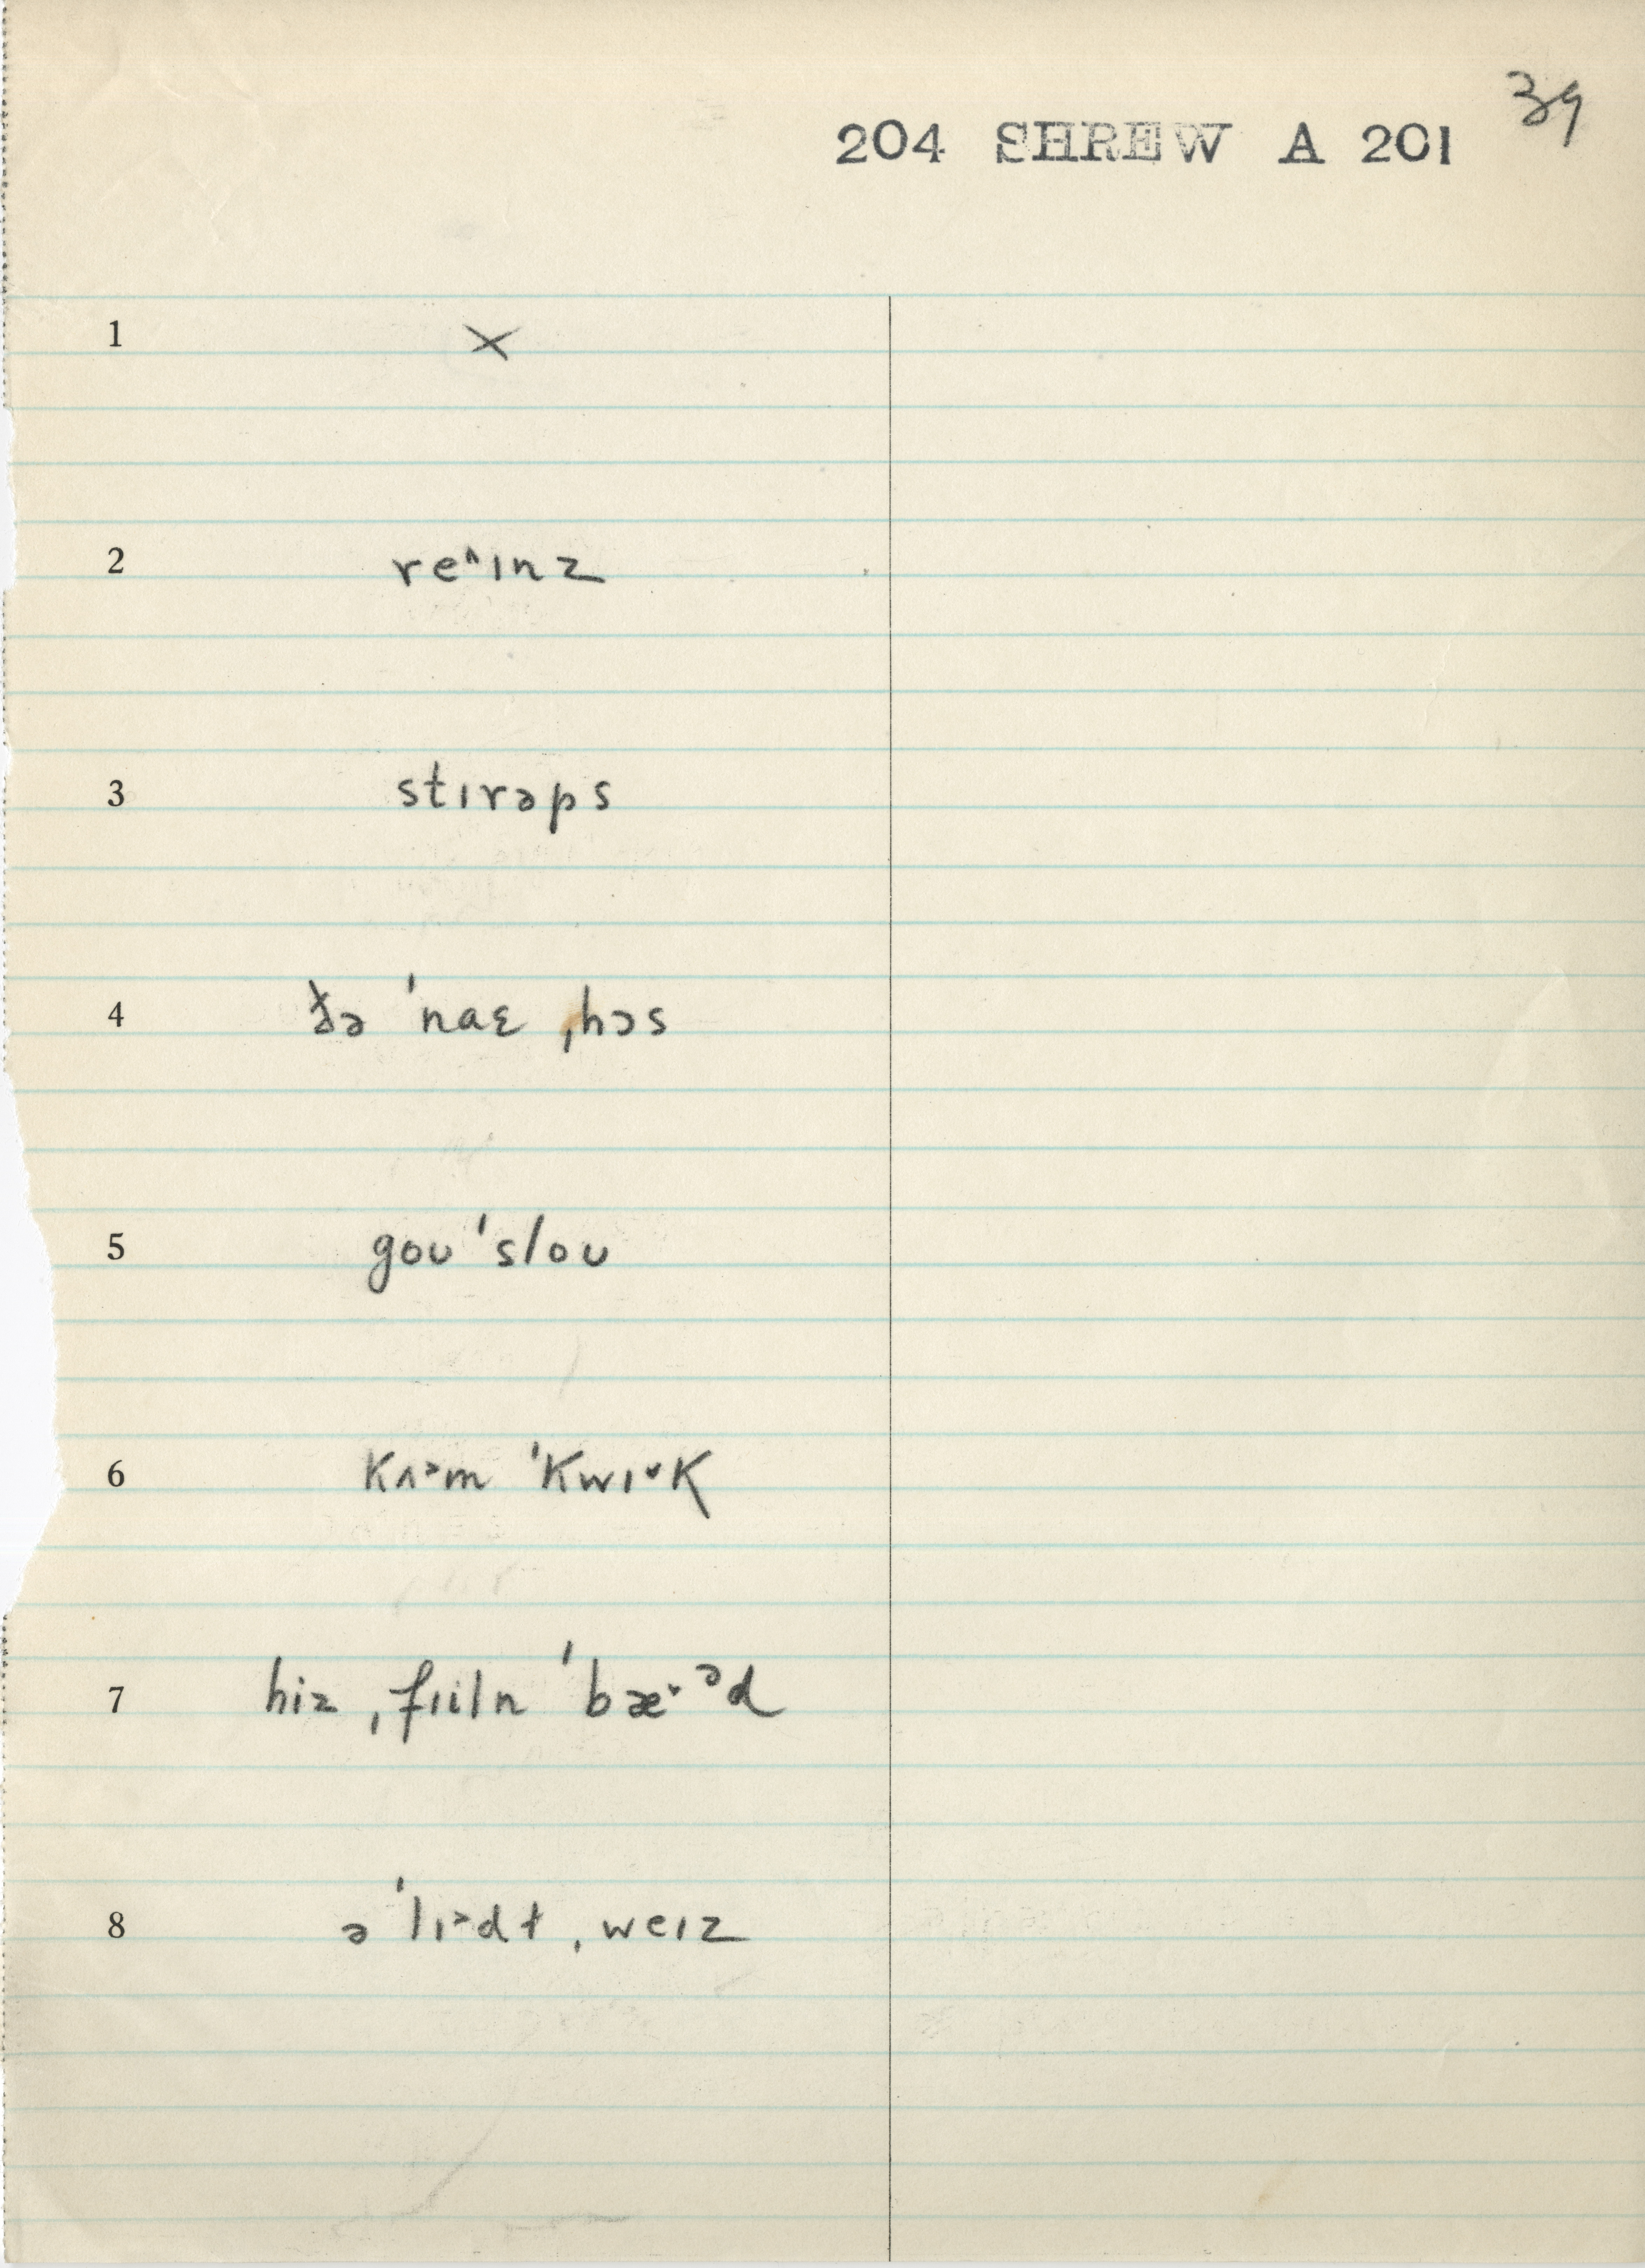 39
204 SHREW A 201
1 ×
2 re˄ɪnz
3 stɪrəps
4 ðə ˈnaɛ ˌhɔs
5 goʊ ˈsloʊ
6 kʌ˃m ˈkwɪ˅k
7 hiz ˌfɪiln ˈbæ˅ᵊd
8 ə ˈlɪ˃dt ˌweɪz